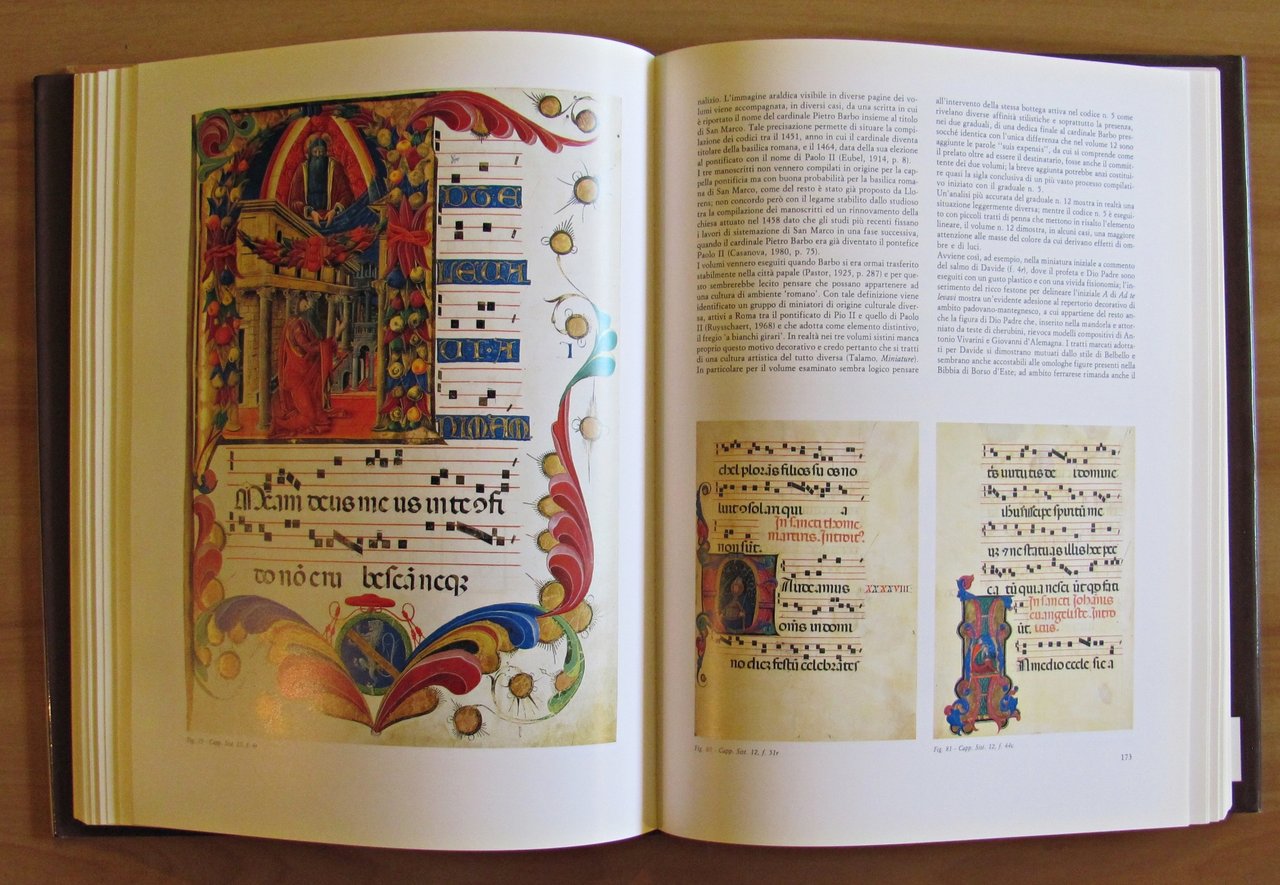 D TE
LEVA
VI · A
NIMAM
Meam deus me us in te ꝯfi
do nō eru be scā neqꝫ
Fig. 79 - Capp. Sist. 12, f. 4r
nalizio. L'immagine araldica visibile in diverse pagine dei vo-
lumi viene accompagnata, in diversi casi, da una scritta in cui
è riportato il nome del cardinale Pietro Barbo insieme al titolo
di San Marco. Tale precisazione permette di situare la compi-
lazione dei codici tra il 1451, anno in cui il cardinale diventa
titolare della basilica romana, e il 1464, data della sua elezione
al pontificato con il nome di Paolo II (Eubel, 1914, p. 8).
I tre manoscritti non vennero compilati in origine per la cap-
pella pontificia ma con buona probabilità per la basilica roma-
na di San Marco, come del resto è stato già proposto da Llo-
rens; non concordo però con il legame stabilito dallo studioso
tra la compilazione dei manoscritti ed un rinnovamento della
chiesa attuato nel 1458 dato che gli studi più recenti fissano
i lavori di sistemazione di San Marco in una fase successiva,
quando il cardinale Pietro Barbo era già diventato il pontefice
Paolo II (Casanova, 1980, p. 75).
I volumi vennero eseguiti quando Barbo si era ormai trasferito
stabilmente nella città papale (Pastor, 1925, p. 287) e per que-
sto sembrerebbe lecito pensare che possano appartenere ad
una cultura di ambiente 'romano'. Con tale definizione viene
identificato un gruppo di miniatori di origine culturale diver-
sa, attivi a Roma tra il pontificato di Pio II e quello di Paolo
II (Ruysschaert, 1968) e che adotta come elemento distintivo,
il fregio 'a bianchi girari'. In realtà nei tre volumi sistini manca
proprio questo motivo decorativo e credo pertanto che si tratti
di una cultura artistica del tutto diversa (Talamo, Miniature).
In particolare per il volume esaminato sembra logico pensare
all'intervento della stessa bottega attiva nel codice n. 5 come
rivelano diverse affinità stilistiche e soprattutto la presenza,
nei due graduali, di una dedica finale al cardinale Barbo pres-
socché identica con l'unica differenza che nel volume 12 sono
aggiunte le parole "suis expensis", da cui si comprende come
il prelato oltre ad essere il destinatario, fosse anche il commit-
tente dei due volumi; la breve aggiunta potrebbe anzi costitui-
re quasi la sigla conclusiva di un più vasto processo compilati-
vo iniziato con il graduale n. 5.
Un'analisi più accurata del graduale n. 12 mostra in realtà una
situazione leggermente diversa; mentre il codice n. 5 è esegui-
to con piccoli tratti di penna che mettono in risalto l'elemento
lineare, il volume n. 12 dimostra, in alcuni casi, una maggiore
attenzione alle masse del colore da cui derivano effetti di om-
bre e di luci.
Avviene così, ad esempio, nella miniatura iniziale a commento
del salmo di Davide (f. 4r), dove il profeta e Dio Padre sono
eseguiti con un gusto plastico e con una vivida fisionomia; l'in-
serimento del ricco festone per delineare l'iniziale A di Ad te
levavi mostra un'evidente adesione al repertorio decorativo di
ambito padovano-mantegnesco, a cui appartiene del resto an-
che la figura di Dio Padre che, inserito nella mandorla e attor-
niato da teste di cherubini, rievoca modelli compositivi di An-
tonio Vivarini e Giovanni d'Alemagna. I tratti marcati adotta-
ti per Davide si dimostrano mutuati dallo stile di Belbello e
sembrano anche accostabili alle omologhe figure presenti nella
Bibbia di Borso d'Este; ad ambito ferrarese rimanda anche il
chel ploraīs filios su os no
luit ꝯsolari qui a
In sancti thome
martiris. Introit᷒.
non sūt.
Audeamus XXXXVIII
oms in domi
no diez festū celebrātes
Fig. 80 - Capp. Sist. 12, f. 51r
ihū suscipe spiritū me
In sancti Johanis
euangeliste. Intro
ūt. itus.
N medio eccle sie a
Fig. 81 - Capp. Sist. 12, f. 44v
173